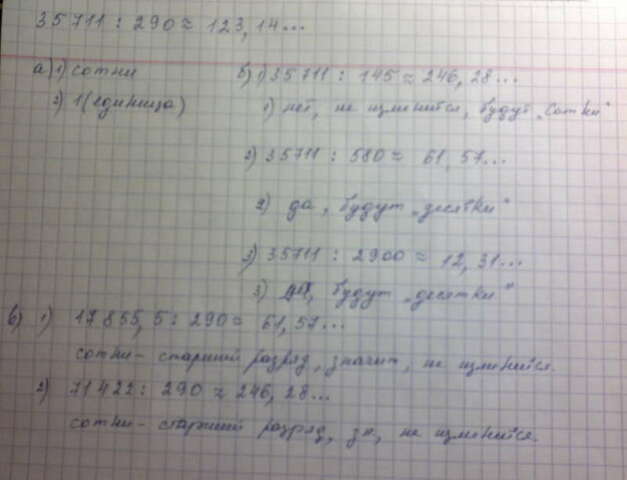 35711 : 290 ≈ 123,14...
а) 1) сотни
2) 1 (единица)
б) 1) 35711 : 145 ≈ 246,28...
1) нет, не изменится, будут „сотни"
2) 35711 : 580 ≈ 61,57...
2) да, будут „десятки"
3) 35711 : 2900 ≈ 12,31...
3) да, будут „десятки"
в) 1) 17855,5 : 290 ≈ 61,57...
сотни - старший разряд, значит, не изменится.
2) 71422 : 290 ≈ 246,28...
сотни - старший разряд, зн, не изменится.